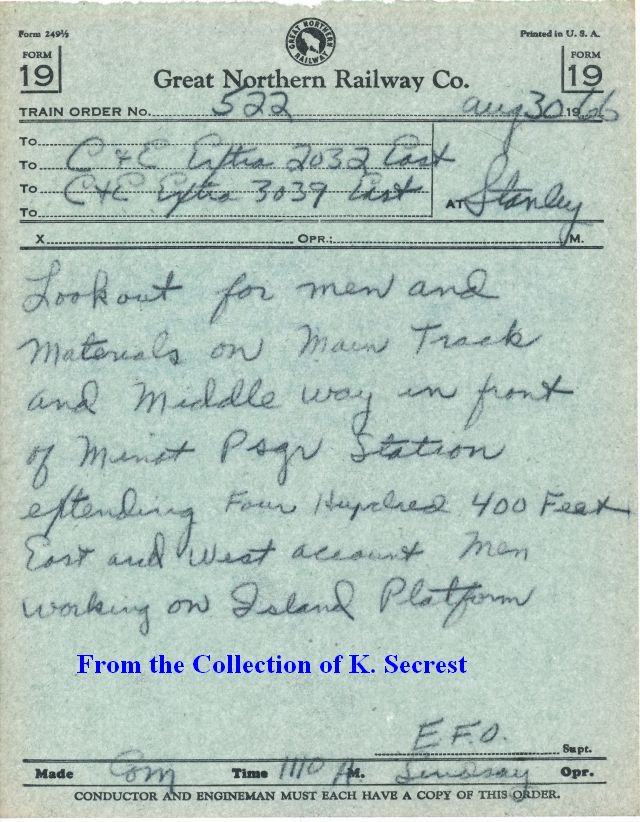 Form 249½
Printed in U. S. A.
GREAT NORTHERN RAILWAY
FORM 19
FORM 19
Great Northern Railway Co.
TRAIN ORDER No. 522 Aug 30 1966
To
To C & E Extra 2032 East
To C & E Extra 3039 East
To
AT Stanley
X OPR.: M.
Lookout for men and
Materials on Main Track
and Middle way in front
of Minot Psgr Station
extending Four Hundred 400 Feet
East and West account Men
working on Island Platform
From the Collection of K. Secrest
E.F.O. Supt.
Made Com Time 1110 A. M. Lindsay Opr.
CONDUCTOR AND ENGINEMAN MUST EACH HAVE A COPY OF THIS ORDER.